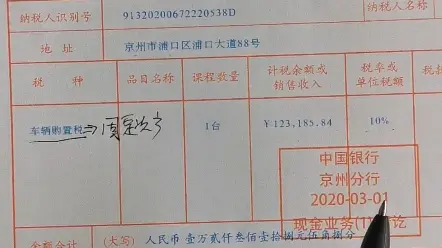 纳税人识别号 91320200672220538D 纳税人名称
地址 京州市浦口区浦口大道88号
税种 品目名称 课程数量 计税余额或销售收入 税率或单位税额 税
车辆购置税 1台 ￥123,185.84 10%
中国银行
京州分行
2020-03-01
现金业务(1)讫
金额合计 (大写) 人民币 壹万贰仟叁佰壹拾捌元伍角捌分